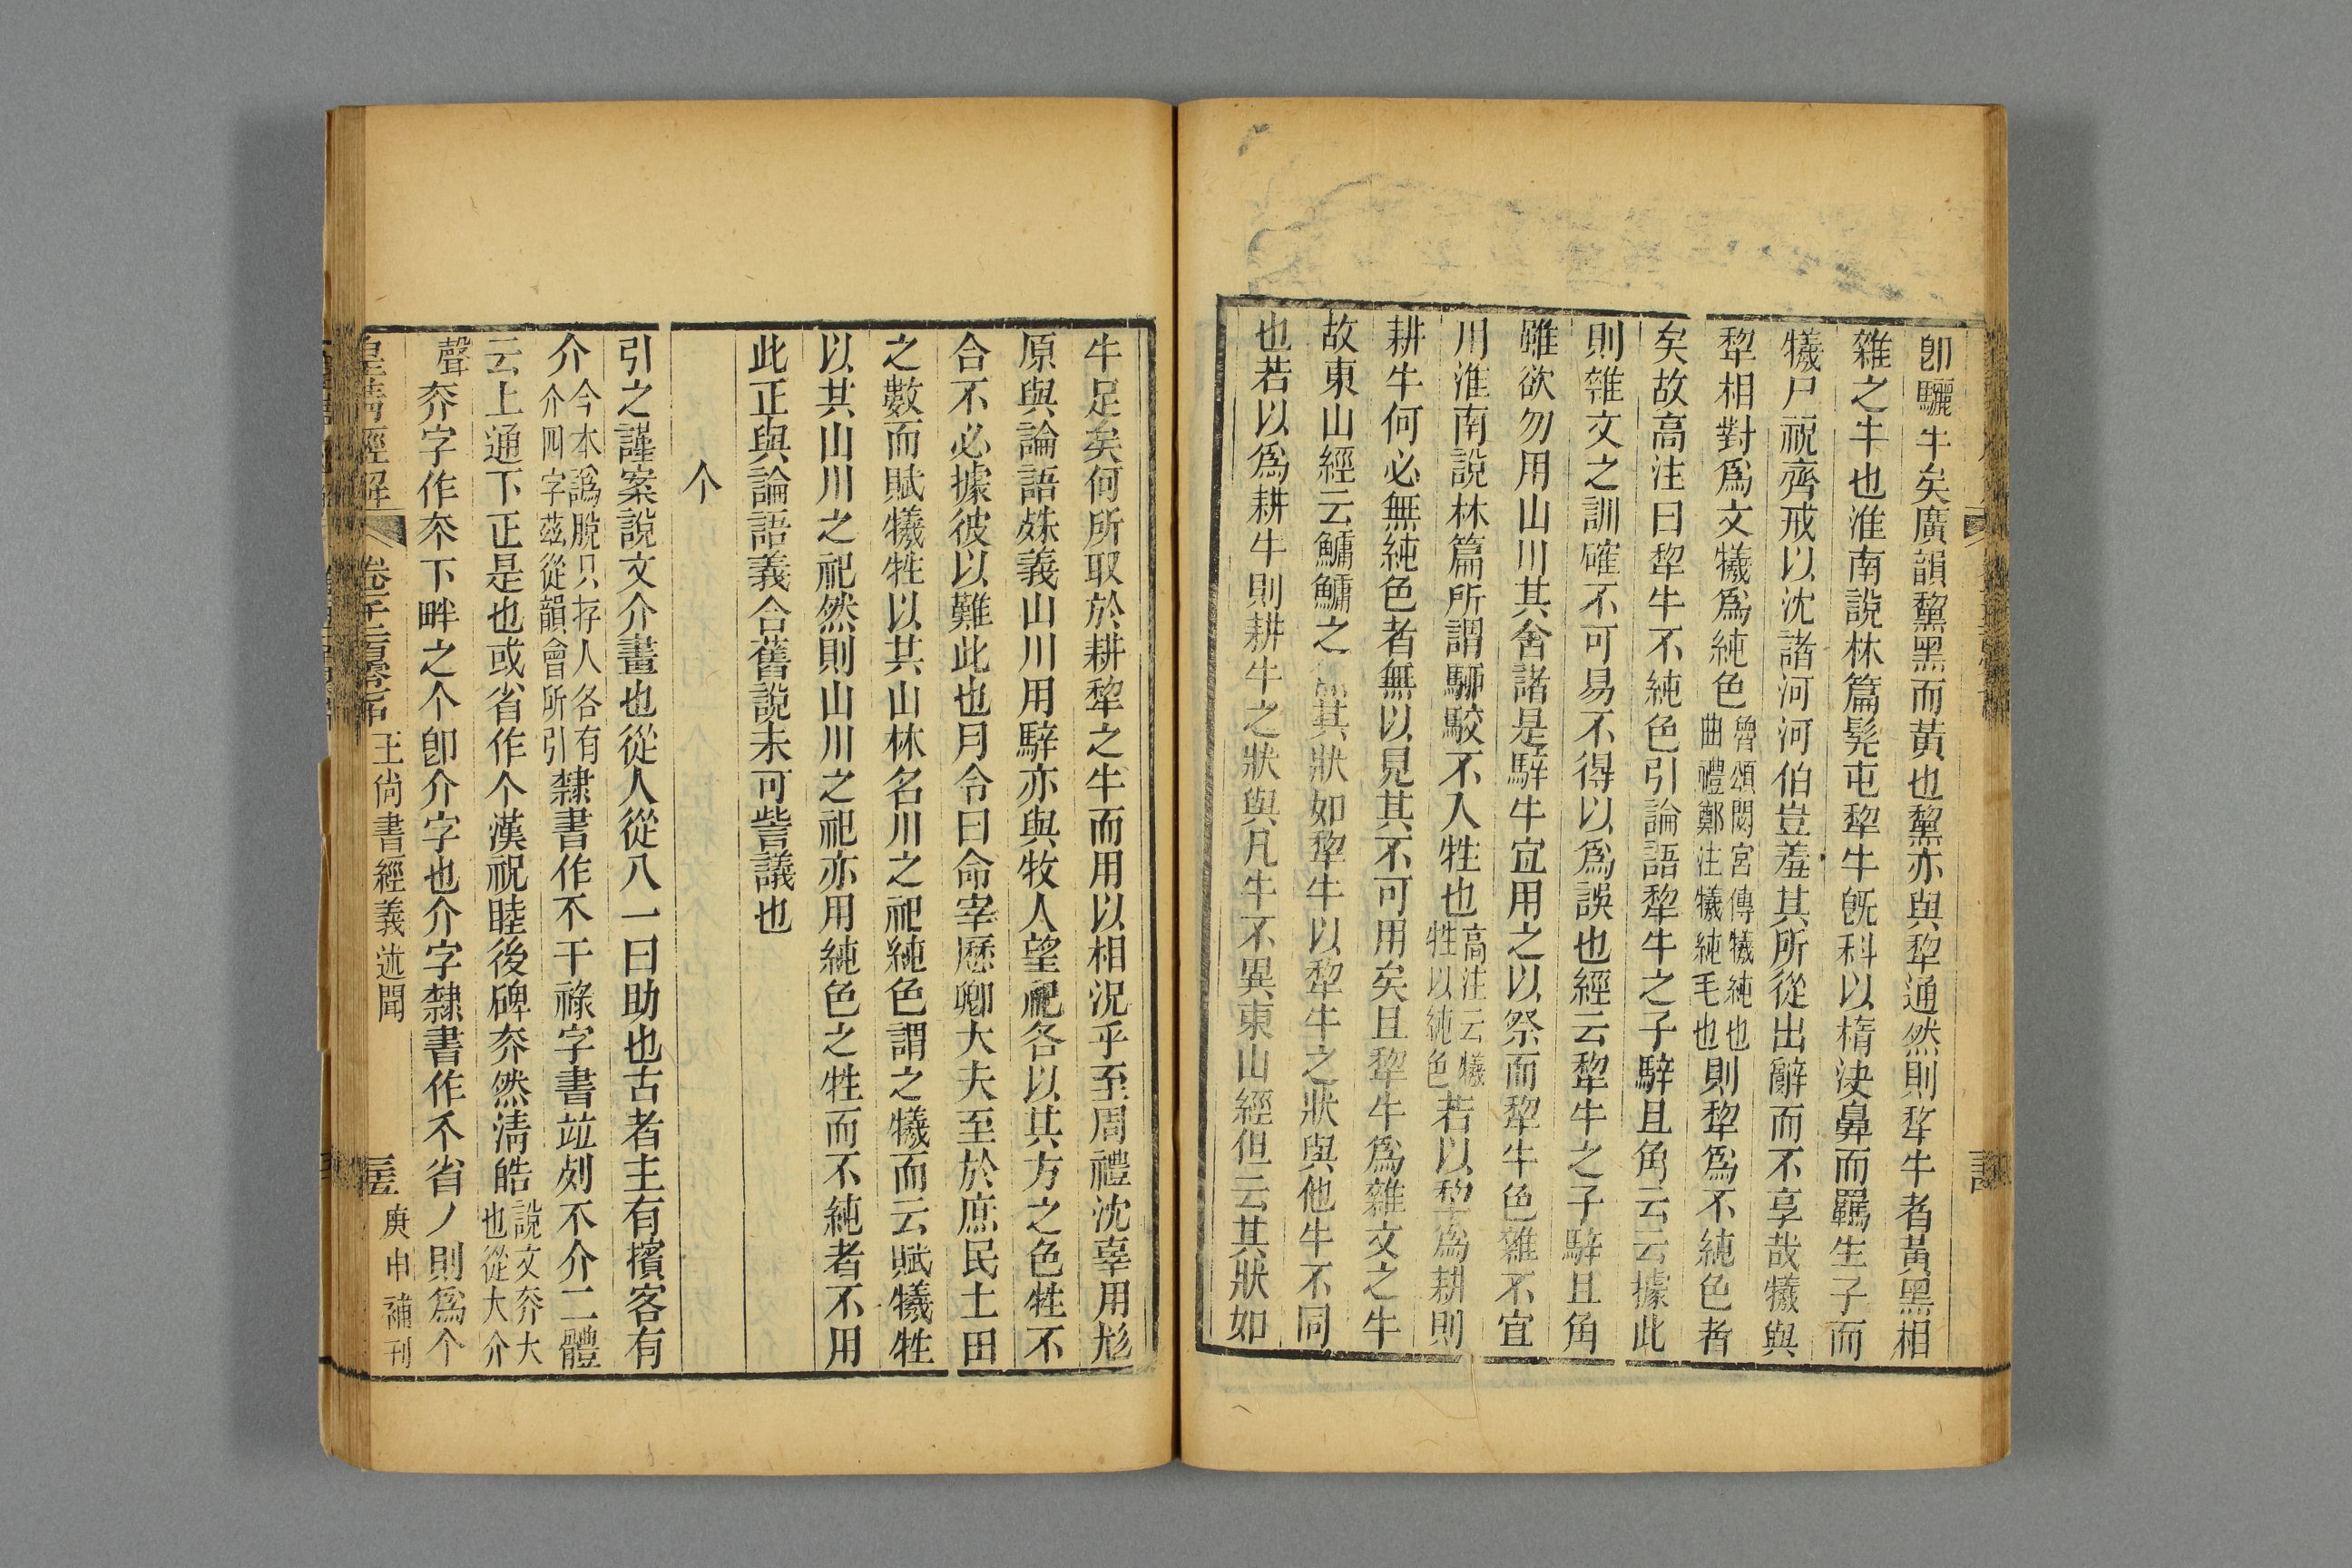 卽驪牛矣廣韻黧黑而黃也黧亦與犂通然則犂牛者黃黑相
雜之牛也淮南說林篇髡屯犂牛旣科以橢決鼻而羈生子而
犧尸祝齊戒以沈諸河河伯豈羞其所從出辭而不享哉犧與
犂相對爲文犧爲純色魯頌閟宮傳犧純也曲禮鄭注犧純毛也則犂爲不純色者
矣故高注曰犂牛不純色引論語犂牛之子騂且角云云據此
則雜文之訓確不可易不得以爲誤也經云犂牛之子騂且角
雖欲勿用山川其舍諸是騂牛宜用之以祭而犂牛色雜不宜
用淮南說林篇所謂駵駮不入牲也高注云犧牲以純色若以犂爲耕則
耕牛何必無純色者無以見其不可用矣且犂牛爲雜文之牛
故東山經云鱅鱅之 其狀如犂牛以犂牛之狀與他牛不同
也若以爲耕牛則耕牛之狀與凡牛不異東山經但云其狀如
牛足矣何所取於耕犂之牛而用以相況乎至周禮沈辜用尨
原與論語殊義山川用騂亦與牧人望祀各以其方之色牲不
合不必據彼以難此也月令曰命宰歷卿大夫至於庶民土田
之數而賦犧牲以共山林名川之祀純色謂之犧而云賦犧牲
以共山川之祀然則山川之祀亦用純色之牲而不純者不用
此正與論語義合舊說未可訾議也
个
引之謹案說文介畫也從人從八一曰助也古者主有擯客有
介今本譌脫只存人各有介四字茲從韻會所引隸書作不干祿字書竝刿不介二體
云上通下正是也或省作个漢祝睦後碑夰然淸皓說文夰大也從大介
聲夰字作夰下畔之个卽介字也介字隸書作不省丿則爲个
皇淸經解 卷千二百零 王尙書經義述聞 庚申補刊